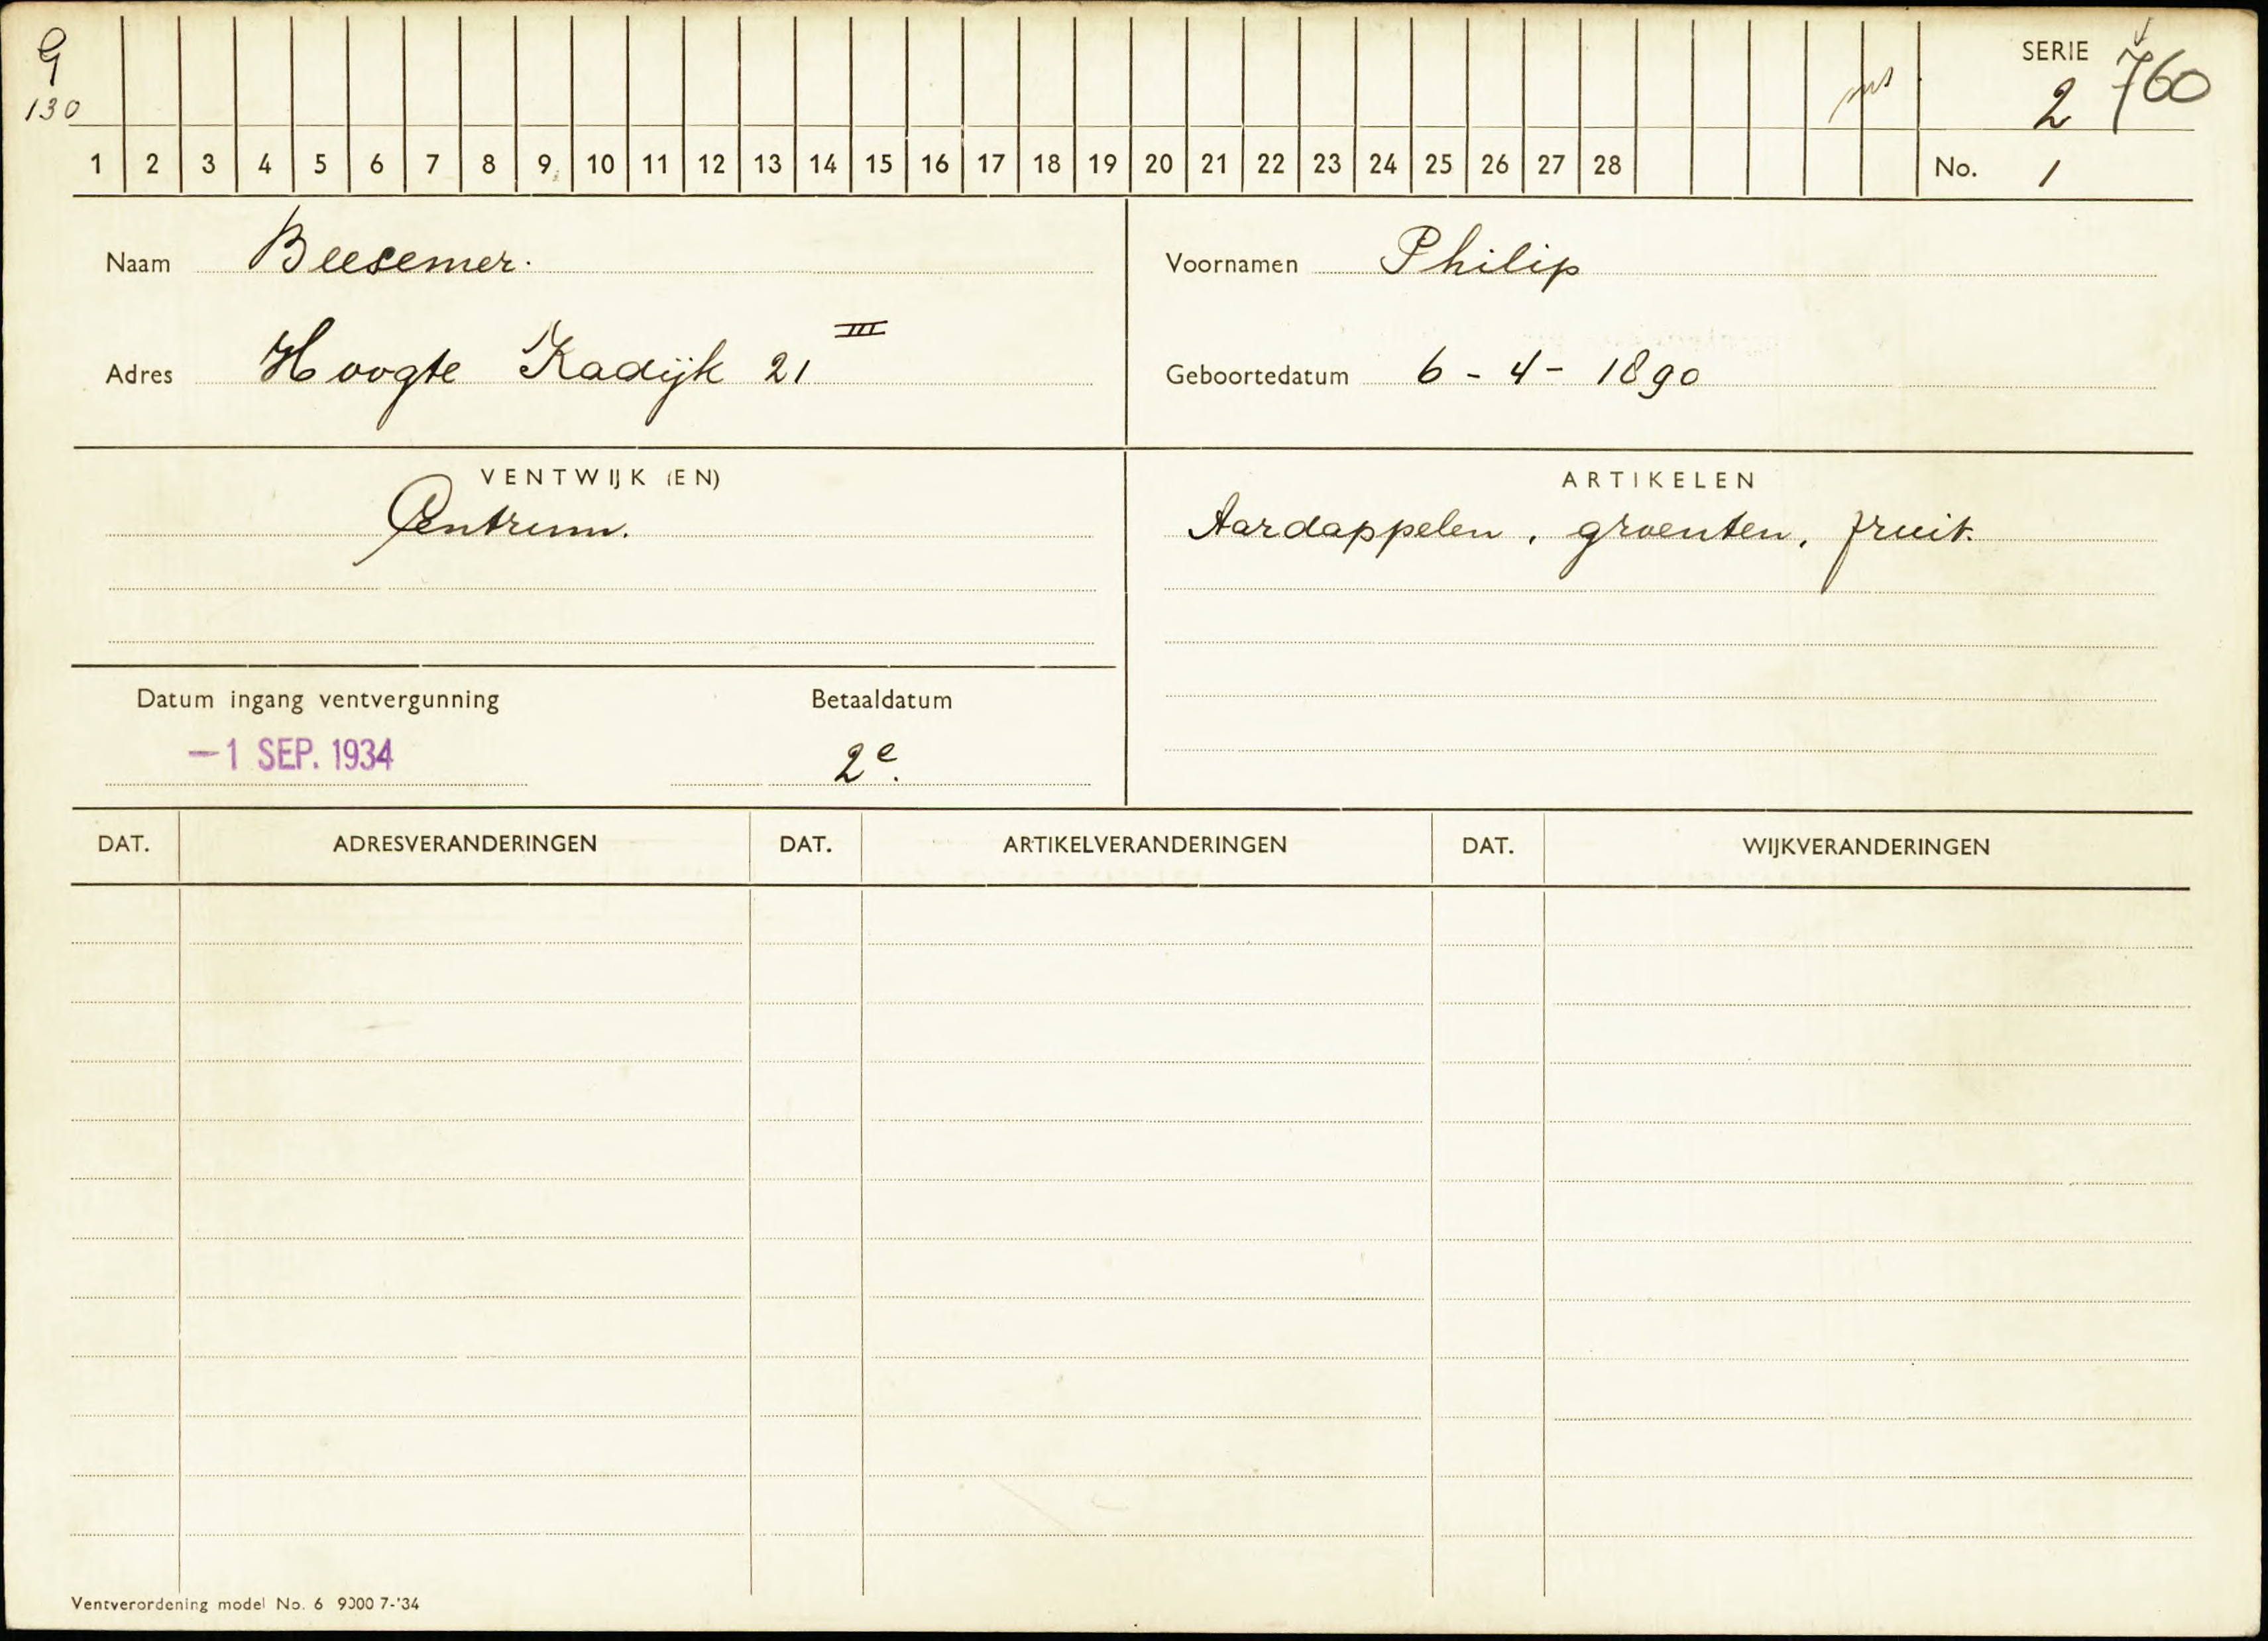 9
130
SERIE 760
2
1 2 3 4 5 6 7 8 9 10 11 12 13 14 15 16 17 18 19 20 21 22 23 24 25 26 27 28 No. 1
Naam Beesemer. Voornamen Philip
Adres Hoogte Kadijk 21 III Geboortedatum 6 - 4 - 1890
VENTWIJK (EN) ARTIKELEN
Centrum. Aardappelen, groenten, fruit.
Datum ingang ventvergunning Betaaldatum
-1 SEP. 1934 2e.
DAT. ADRESVERANDERINGEN DAT. ARTIKELVERANDERINGEN DAT. WIJKVERANDERINGEN
Ventverordening model No. 6 9000 7-'34